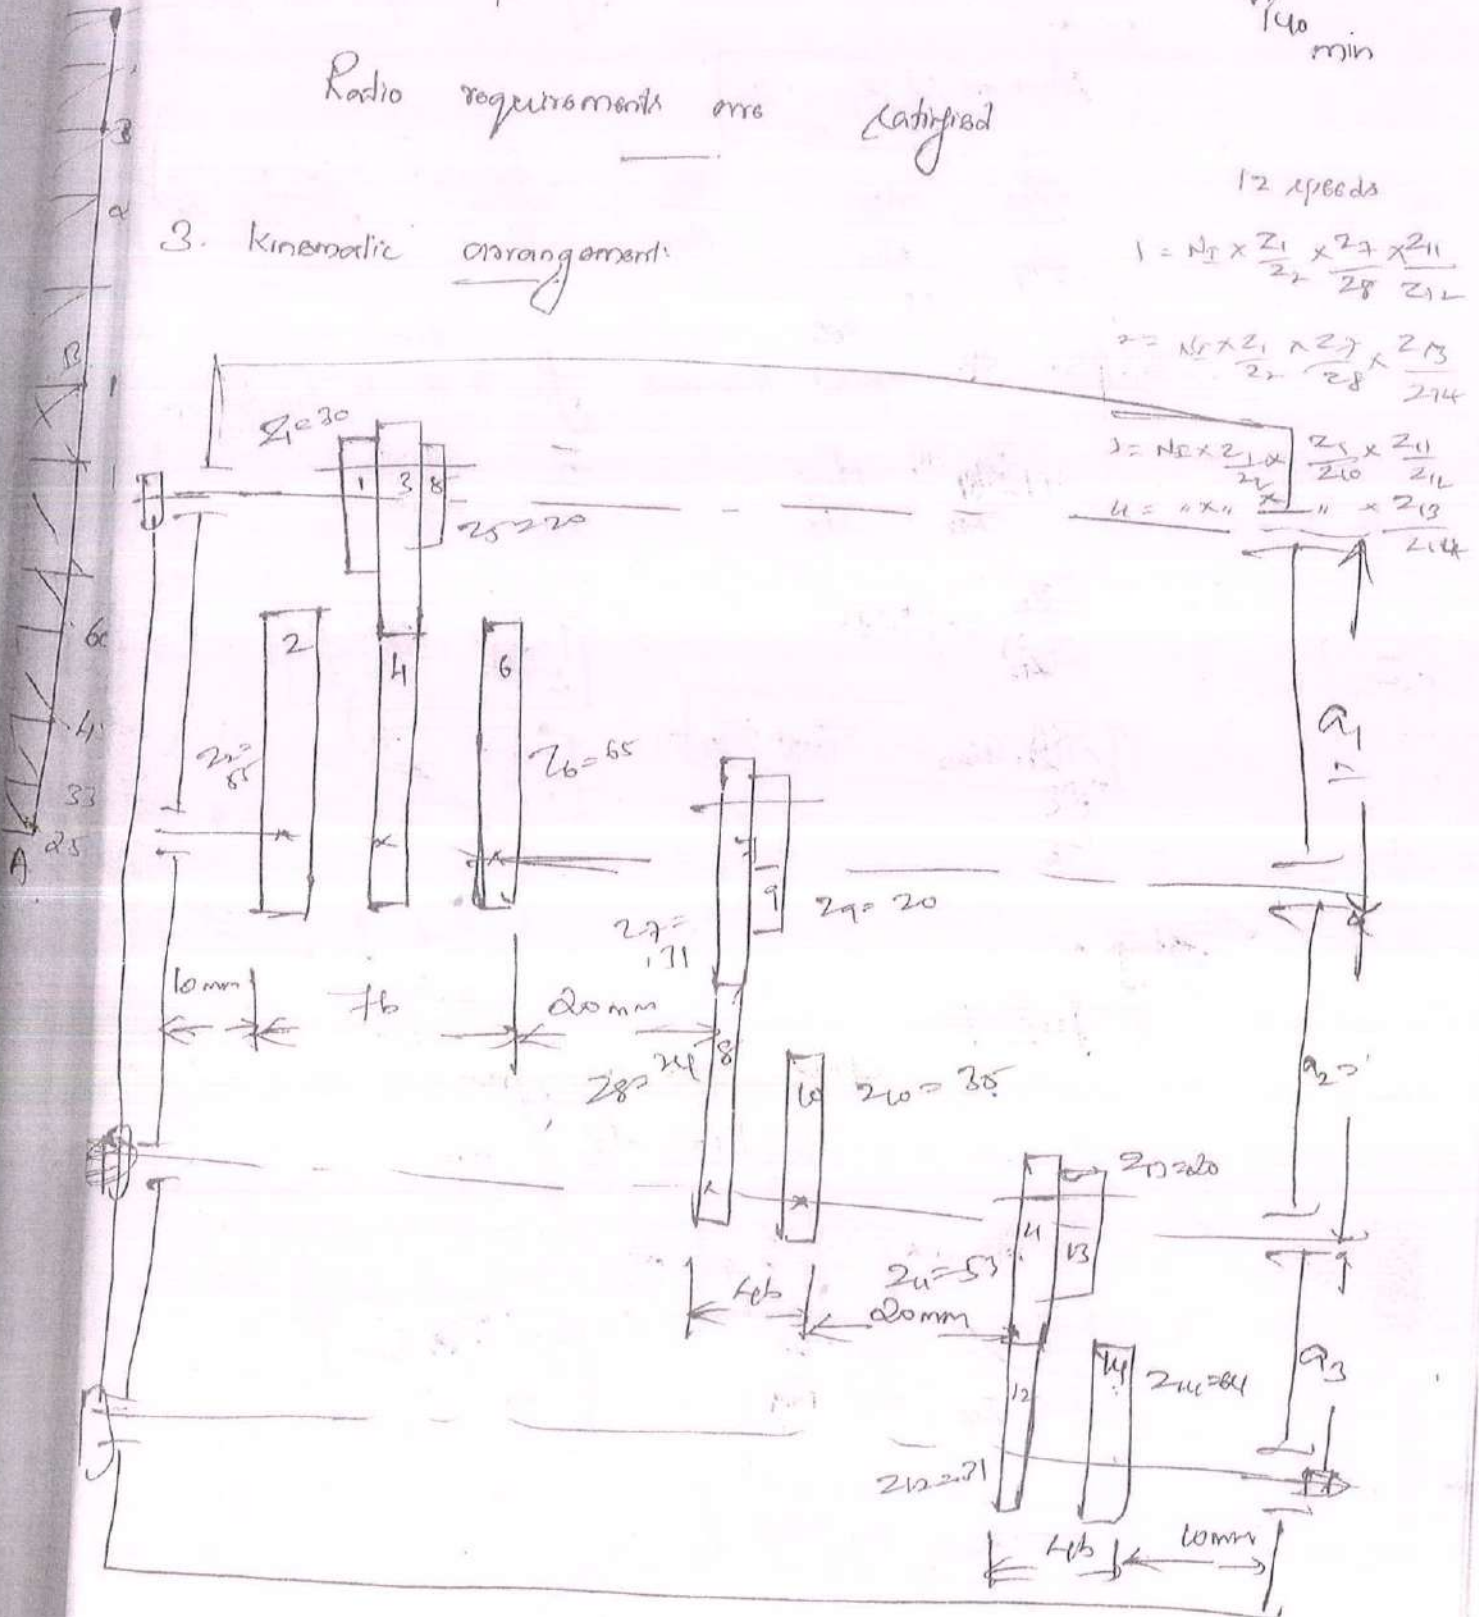 1/40 min
Radio requirements are satisfied
12 speeds
3. Kinematic arrangement:
1 = NI × Z1/Z2 × Z7/Z8 × Z11/Z12
2 = NI × Z1/Z2 × Z7/Z8 × Z13/Z14
3 = NI × Z1/Z2 × Z9/Z10 × Z11/Z12
4 = "×" × " × Z13/Z14
Z1=30
1 3 8
Z5=20
2 4 6
Z6=65
a1
33
25
A
B
7 9
Z9=20
Z7=31
10mm 7b 20mm
8 10
Z10=35
a2=
Z13=20
11 13
Z11=53
4b 20mm
a3
12 14
Z14=64
Z12=31
4b 10mm